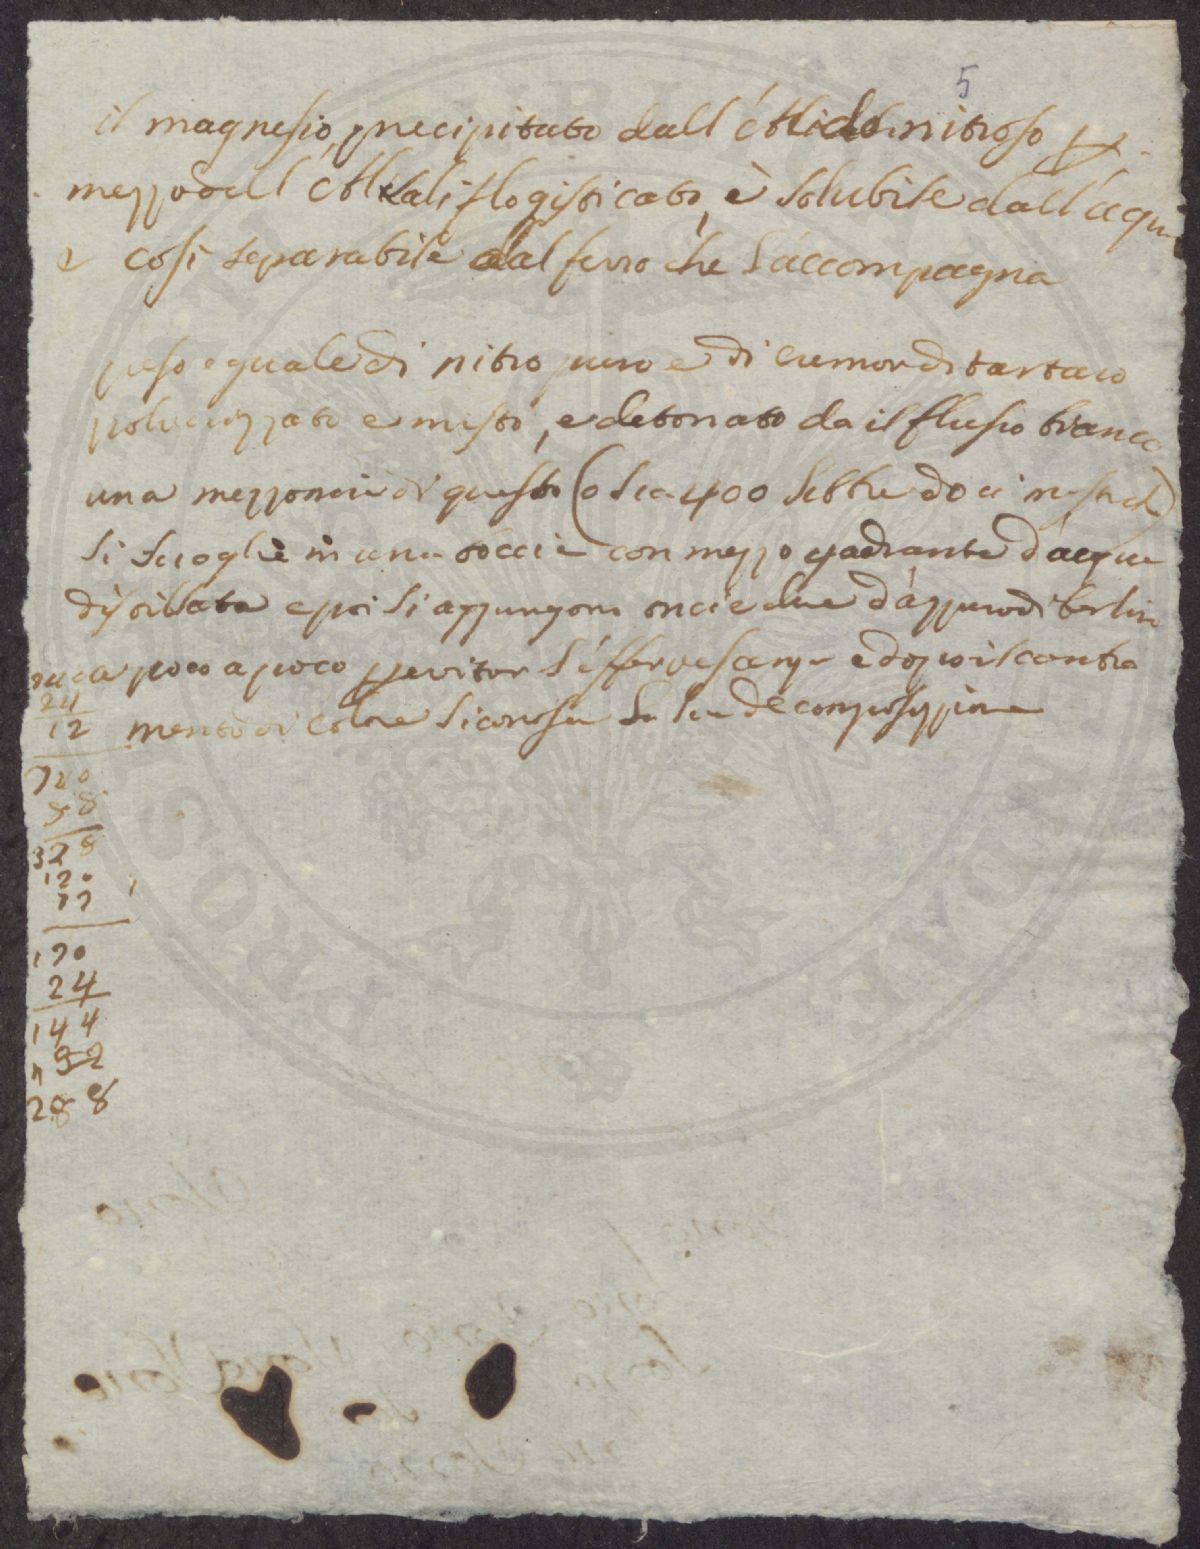 5
il magnesio, precipitato dall'Acido nitroso per
mezzo dell'Alkali flogisticato, è solubile dall'acqua
e così separabile dal ferro che l'accompagna
peso eguale di nitro puro e di cremor di tartaro
polverizzato e misto, e detonato da il flusso bianco
una mezz'oncia di questo (o sia 400
si scioglie in una boccia con mezzo quadrante d'acqua
distillata e poi si aggiungono oncie due d'azzuro di berlino
a poco a poco per evitar l'effervescenza e dopo il
mento di colore si conosce la sua decomposizione
24
12
720
58
328
120
77
170
24
144
92
288